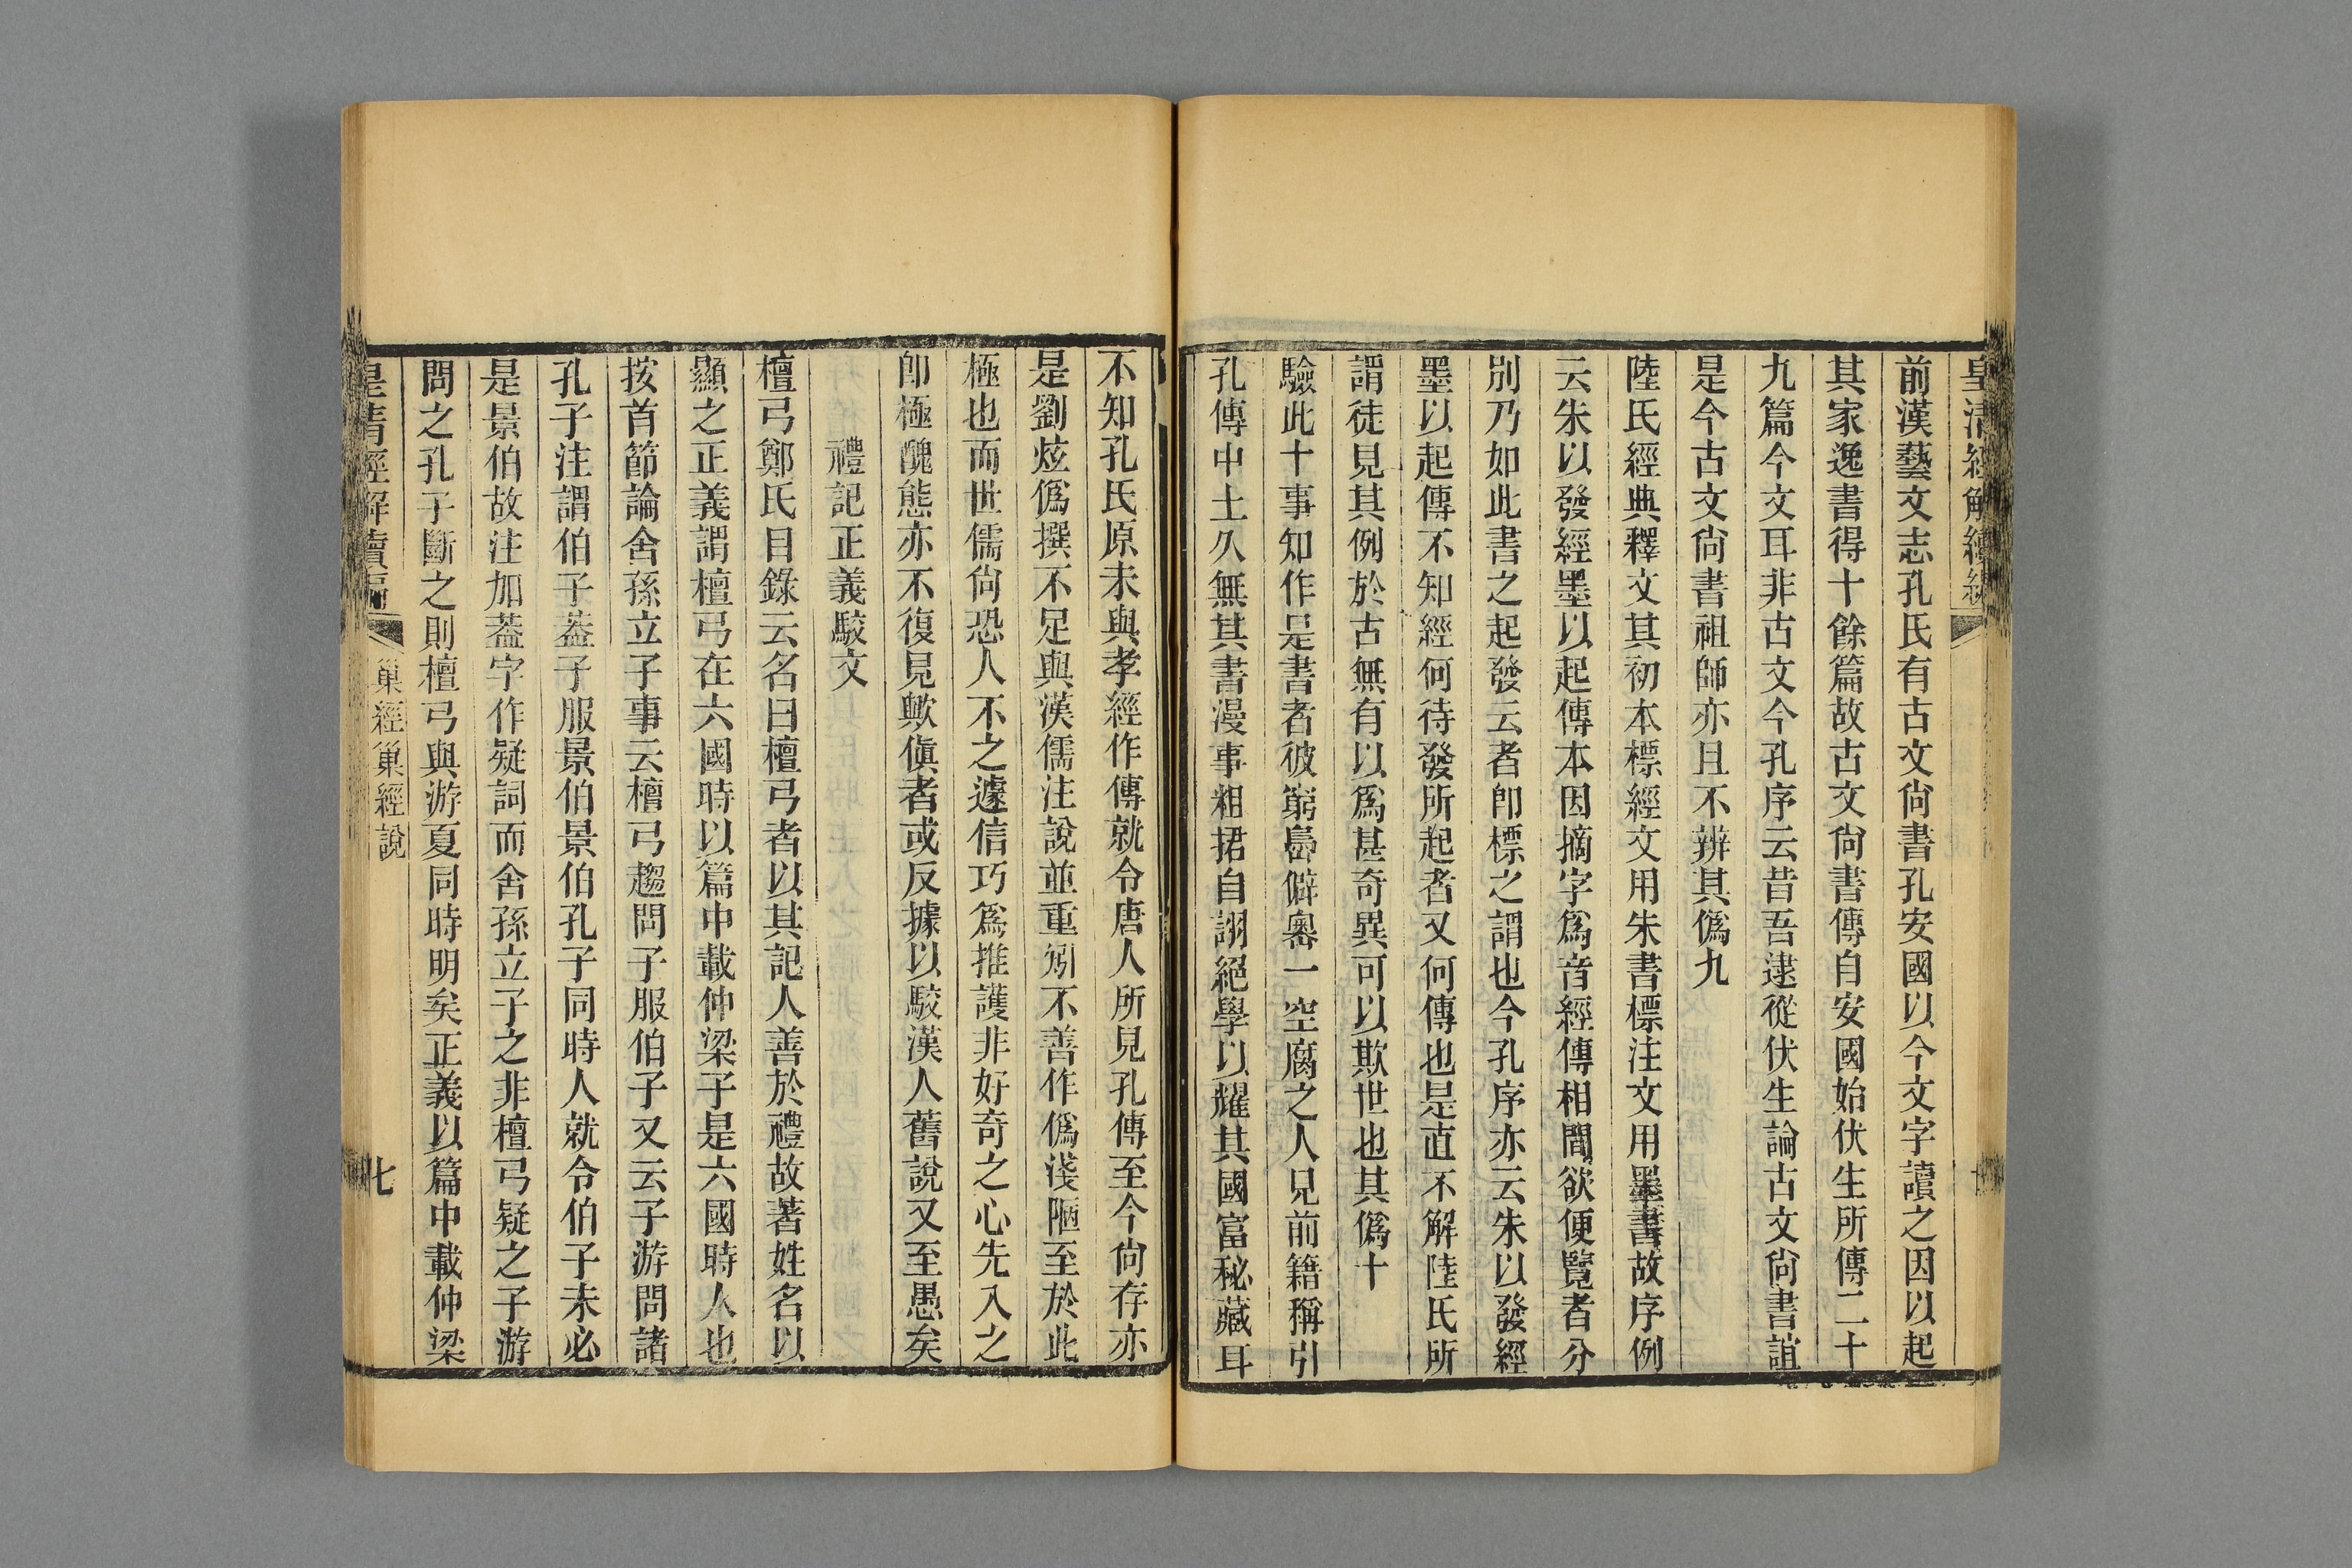 皇清經解續編
前漢藝文志孔氏有古文尙書孔安國以今文字讀之因以起
其家逸書得十餘篇故古文尙書傳自安國始伏生所傳二十
九篇今文耳非古文今孔序云昔吾逮從伏生論古文尙書誼
是今古文尙書祖師亦且不辨其僞九
陸氏經典釋文其初本標經文用朱書標注文用墨書故序例
云朱以發經墨以起傳本因摘字爲音經傳相間欲便覽者分
別乃如此書之起發云者卽標之謂也今孔序亦云朱以發經
墨以起傳不知經何待發所起者又何傳也是直不解陸氏所
謂徒見其例於古無有以爲甚奇異可以欺世也其僞十
驗此十事知作是書者彼窮島僻奧一空腐之人兒前籍稱引
孔傳中土久無其書漫事粗捃自詡絕學以耀其國富秘藏耳
不知孔氏原未與孝經作傳就令唐人所見孔傳至今尙存亦
是劉炫僞撰不足與漢儒注說並重矧不善作僞淺陋至於此
極也而世儒尙恐人不之遽信巧爲推護非好奇之心先入之
卽極醜態亦不復見歟傎者或反據以駁漢人舊說又至愚矣
禮記正義駁文
檀弓鄭氏目錄云名曰檀弓者以其記人善於禮故著姓名以
顯之正義謂檀弓在六國時以篇中載仲梁子是六國時人也
按首節論舍孫立子事云檀弓趨問子服伯子又云子游問諸
孔子注謂伯子蓋子服景伯景伯孔子同時人就令伯子未必
是景伯故注加蓋字作疑詞而舍孫立子之非檀弓疑之子游
問之孔子斷之則檀弓與游夏同時明矣正義以篇中載仲梁
皇清經解續編
巢經巢經說
七